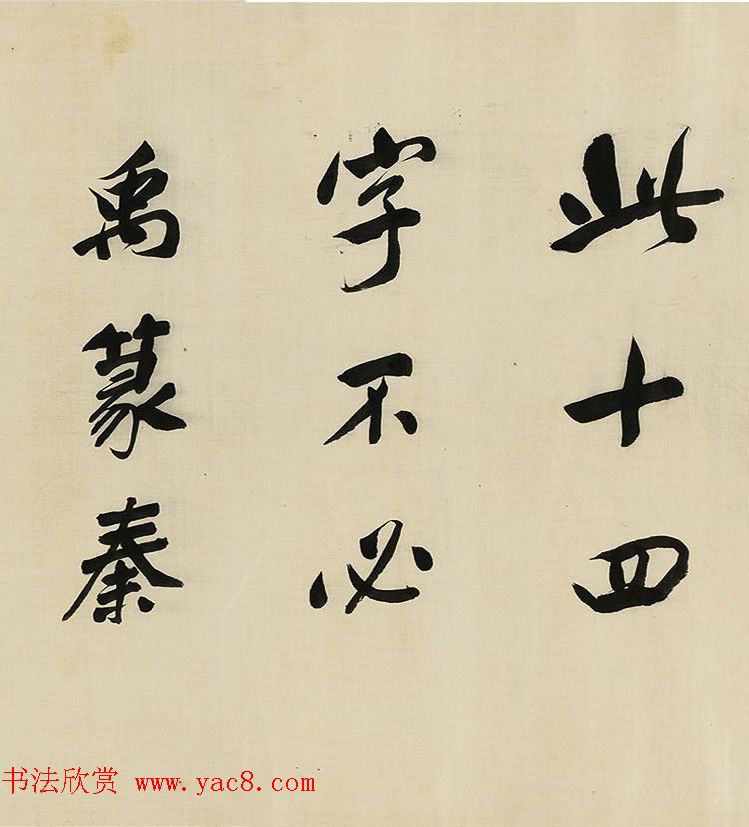 此十四
字不必
禹篆秦
书法欣赏 www.yac8.com